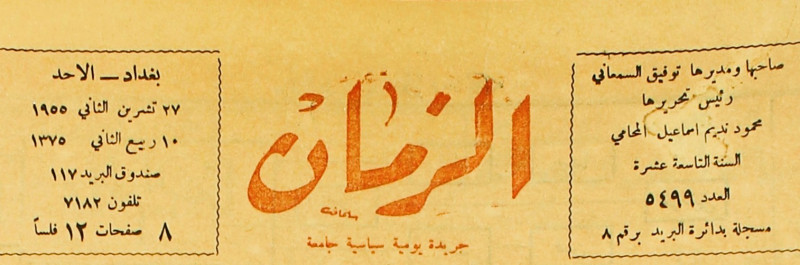 صاحبها ومديرها توفيق السمعاني
رئيس تحريرها
محمود نديم اسماعيل المحامي
السنة التاسعة عشرة
العدد ٥٤٩٩
مسجلة بدائرة البريد برقم ٨
الزمان
جريدة يومية سياسية جامعة
بغداد — الاحد
٢٧ تشرين الثاني ١٩٥٥
١٠ ربيع الثاني ١٣٧٥
صندوق البريد ١١٧
تلفون ٧١٨٢
٨ صفحات ١٢ فلساً